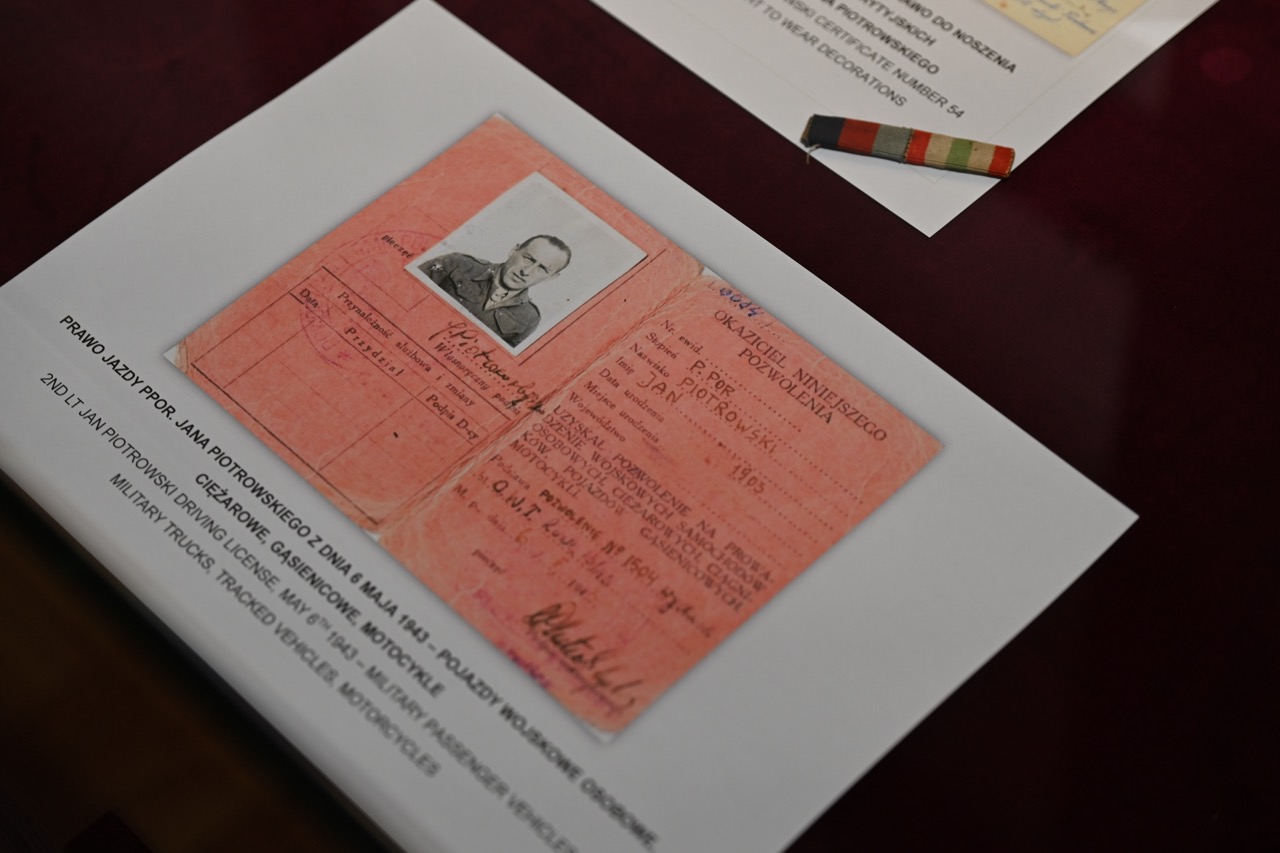 AWO DO NOSZENIA
YTYJSKICH
A PIOTROWSKIEGO
WSKI CERTIFICATE NUMBER 54
T TO WEAR DECORATIONS
pieczęć
Własnoręczny podpis
Przynależność służbowa i zmiany
Data
Przydział
Podpis Dcy
OKAZICIEL NINIEJSZEGO
POZWOLENIA
Nr. ewid.
Stopień P.POR
Nazwisko PIOTROWSKI
Imię JAN
Data urodzenia 1905
Miejsce urodzenia
Województwo
UZYSKAŁ POZWOLENIE NA PROWA-
DZENIE WOJSKOWYCH SAMOCHODÓW
OSOBOWYCH, CIĘŻAROWYCH, CIĄGNI-
KÓW, POJAZDÓW GĄSIENICOWYCH,
MOTOCYKLI.
Podstawa POZWOLENIE Nº 1504
M. p.
PRAWO JAZDY PPOR. JANA PIOTROWSKIEGO Z DNIA 6 MAJA 1943 – POJAZDY WOJSKOWE OSOBOWE,
CIĘŻAROWE, GĄSIENICOWE, MOTOCYKLE
2ND LT JAN PIOTROWSKI DRIVING LICENSE, MAY 6TH 1943 – MILITARY PASSENGER VEHICLES
MILITARY TRUCKS, TRACKED VEHICLES, MOTORCYCLES